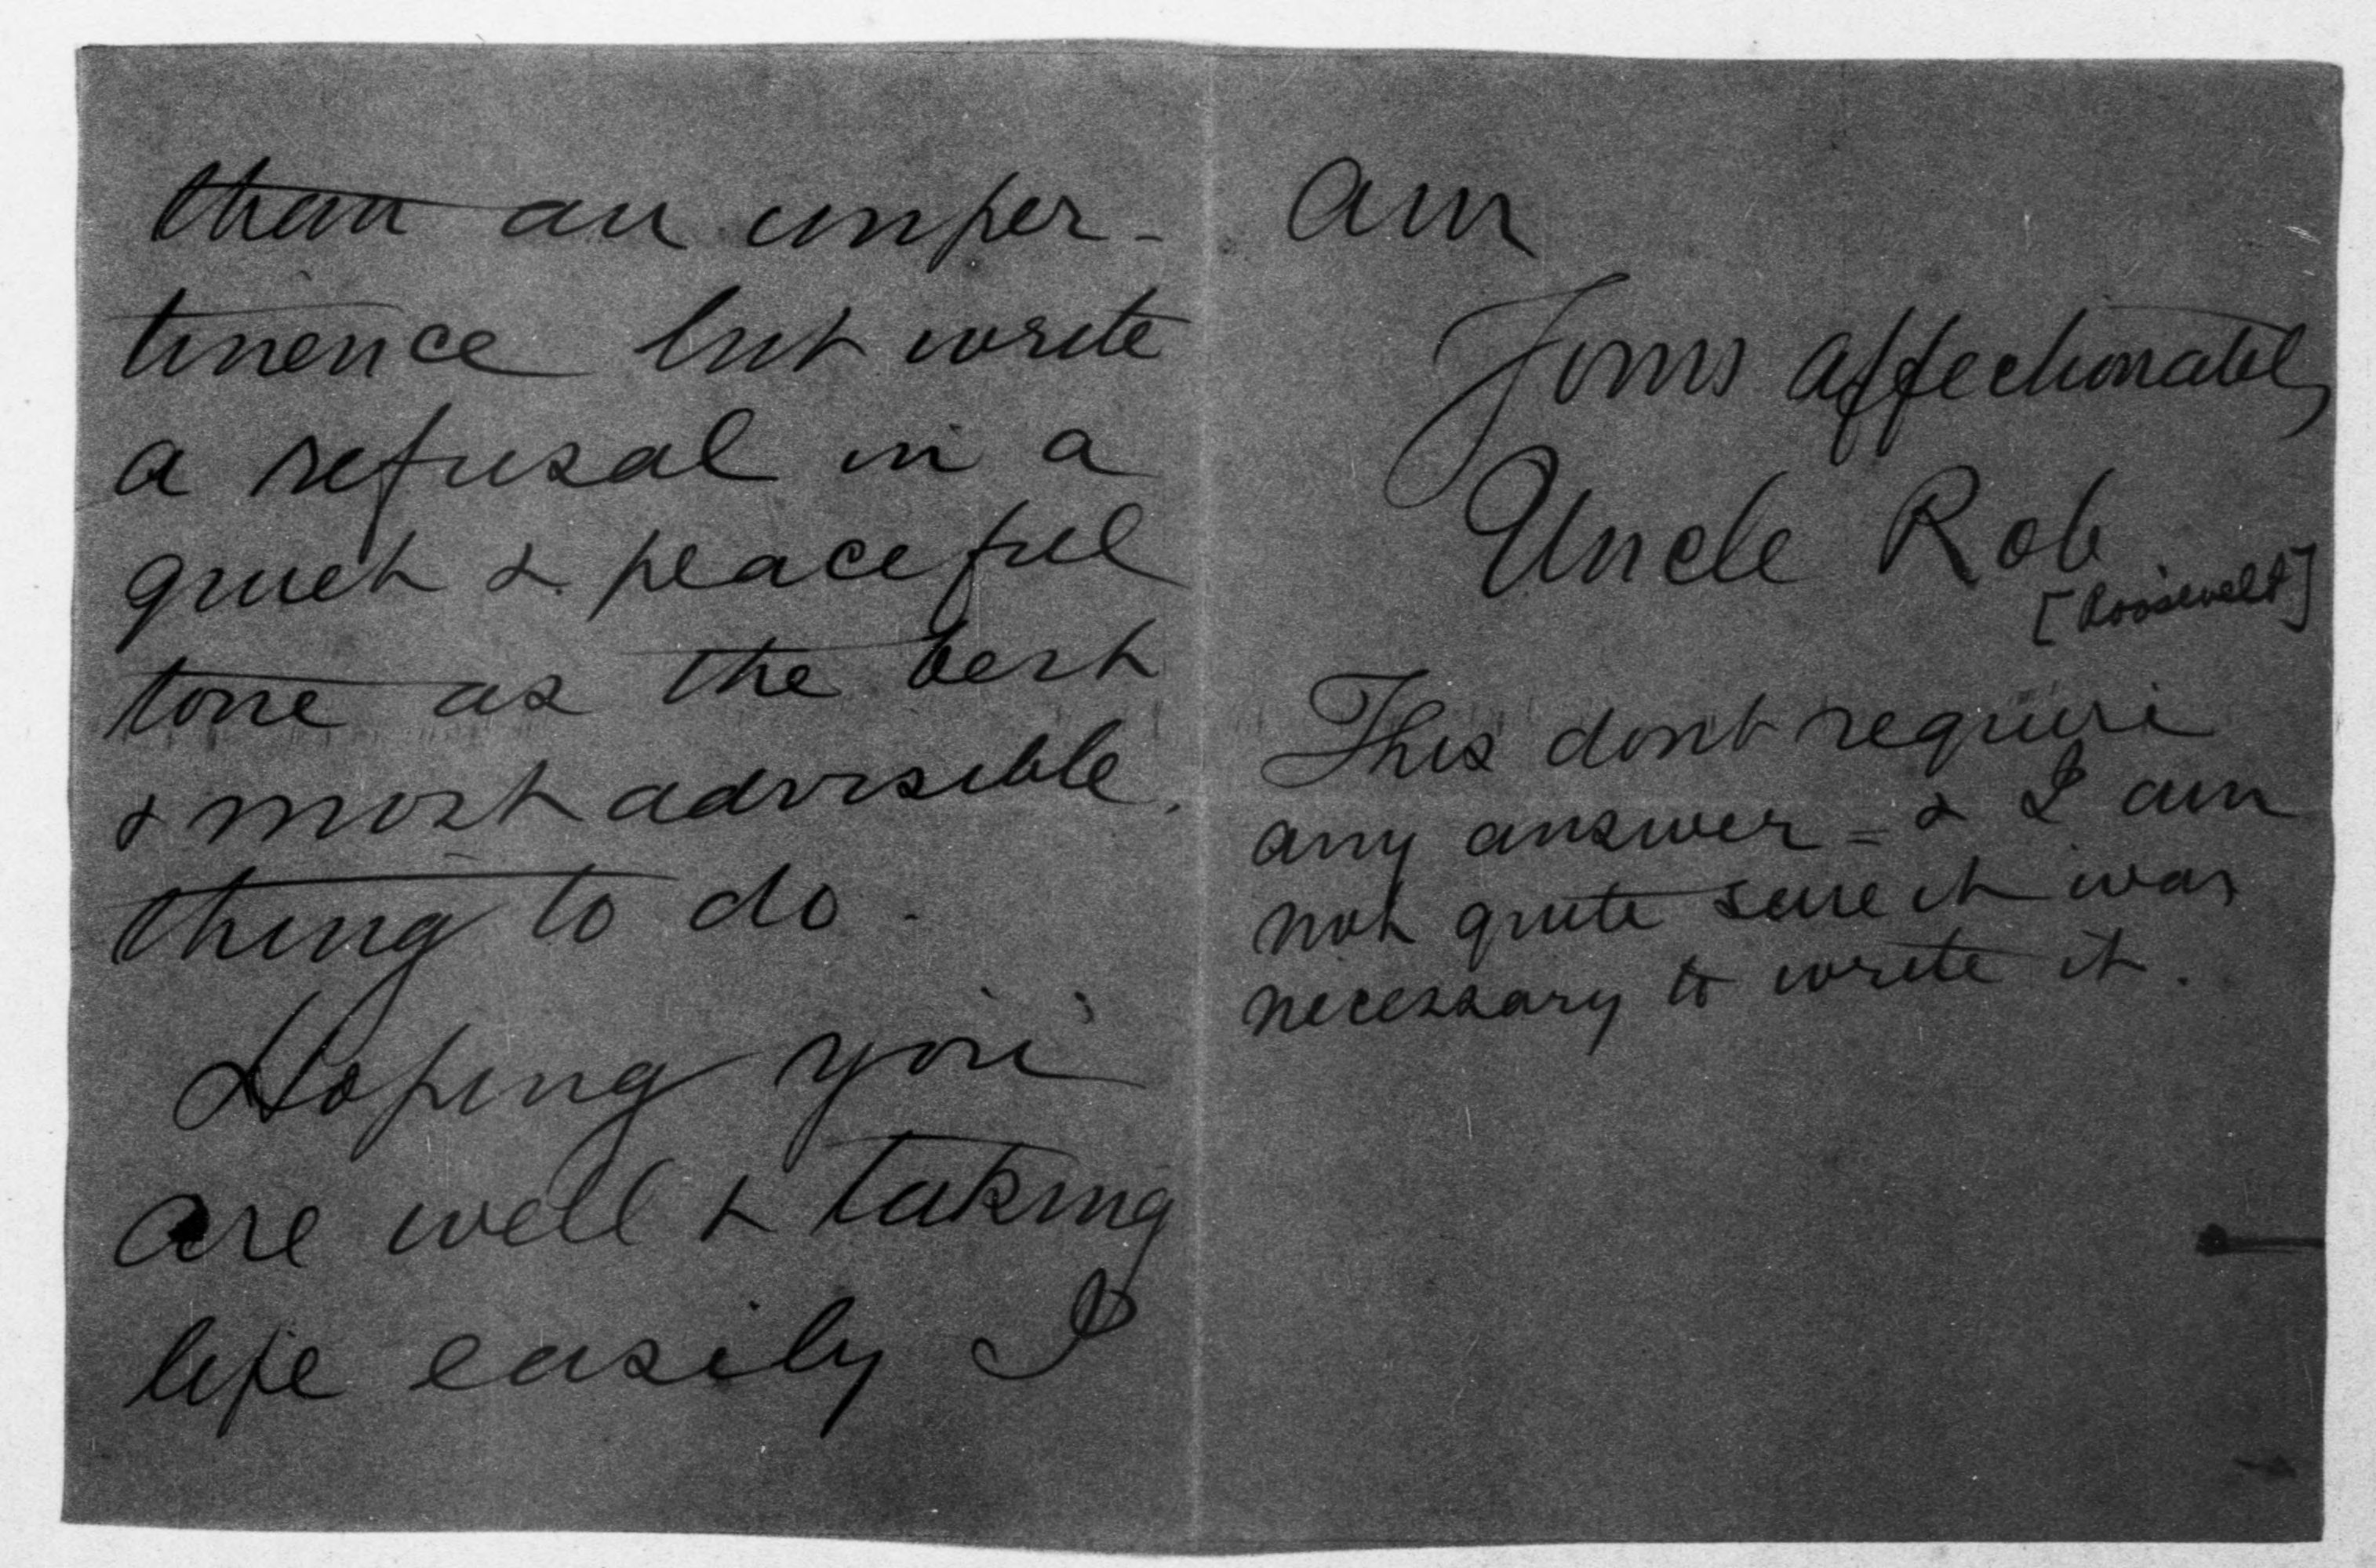 than an imper-
tinence but write
a refusal in a
quiet & peaceful
tone as the best
& most advisible
thing to do.
Hoping you
are well & taking
life easily I
am
Yours affectionately
Uncle Rob
[Roosevelt]
This dont require
any answer = & I am
not quite sure it was
necessary to write it.